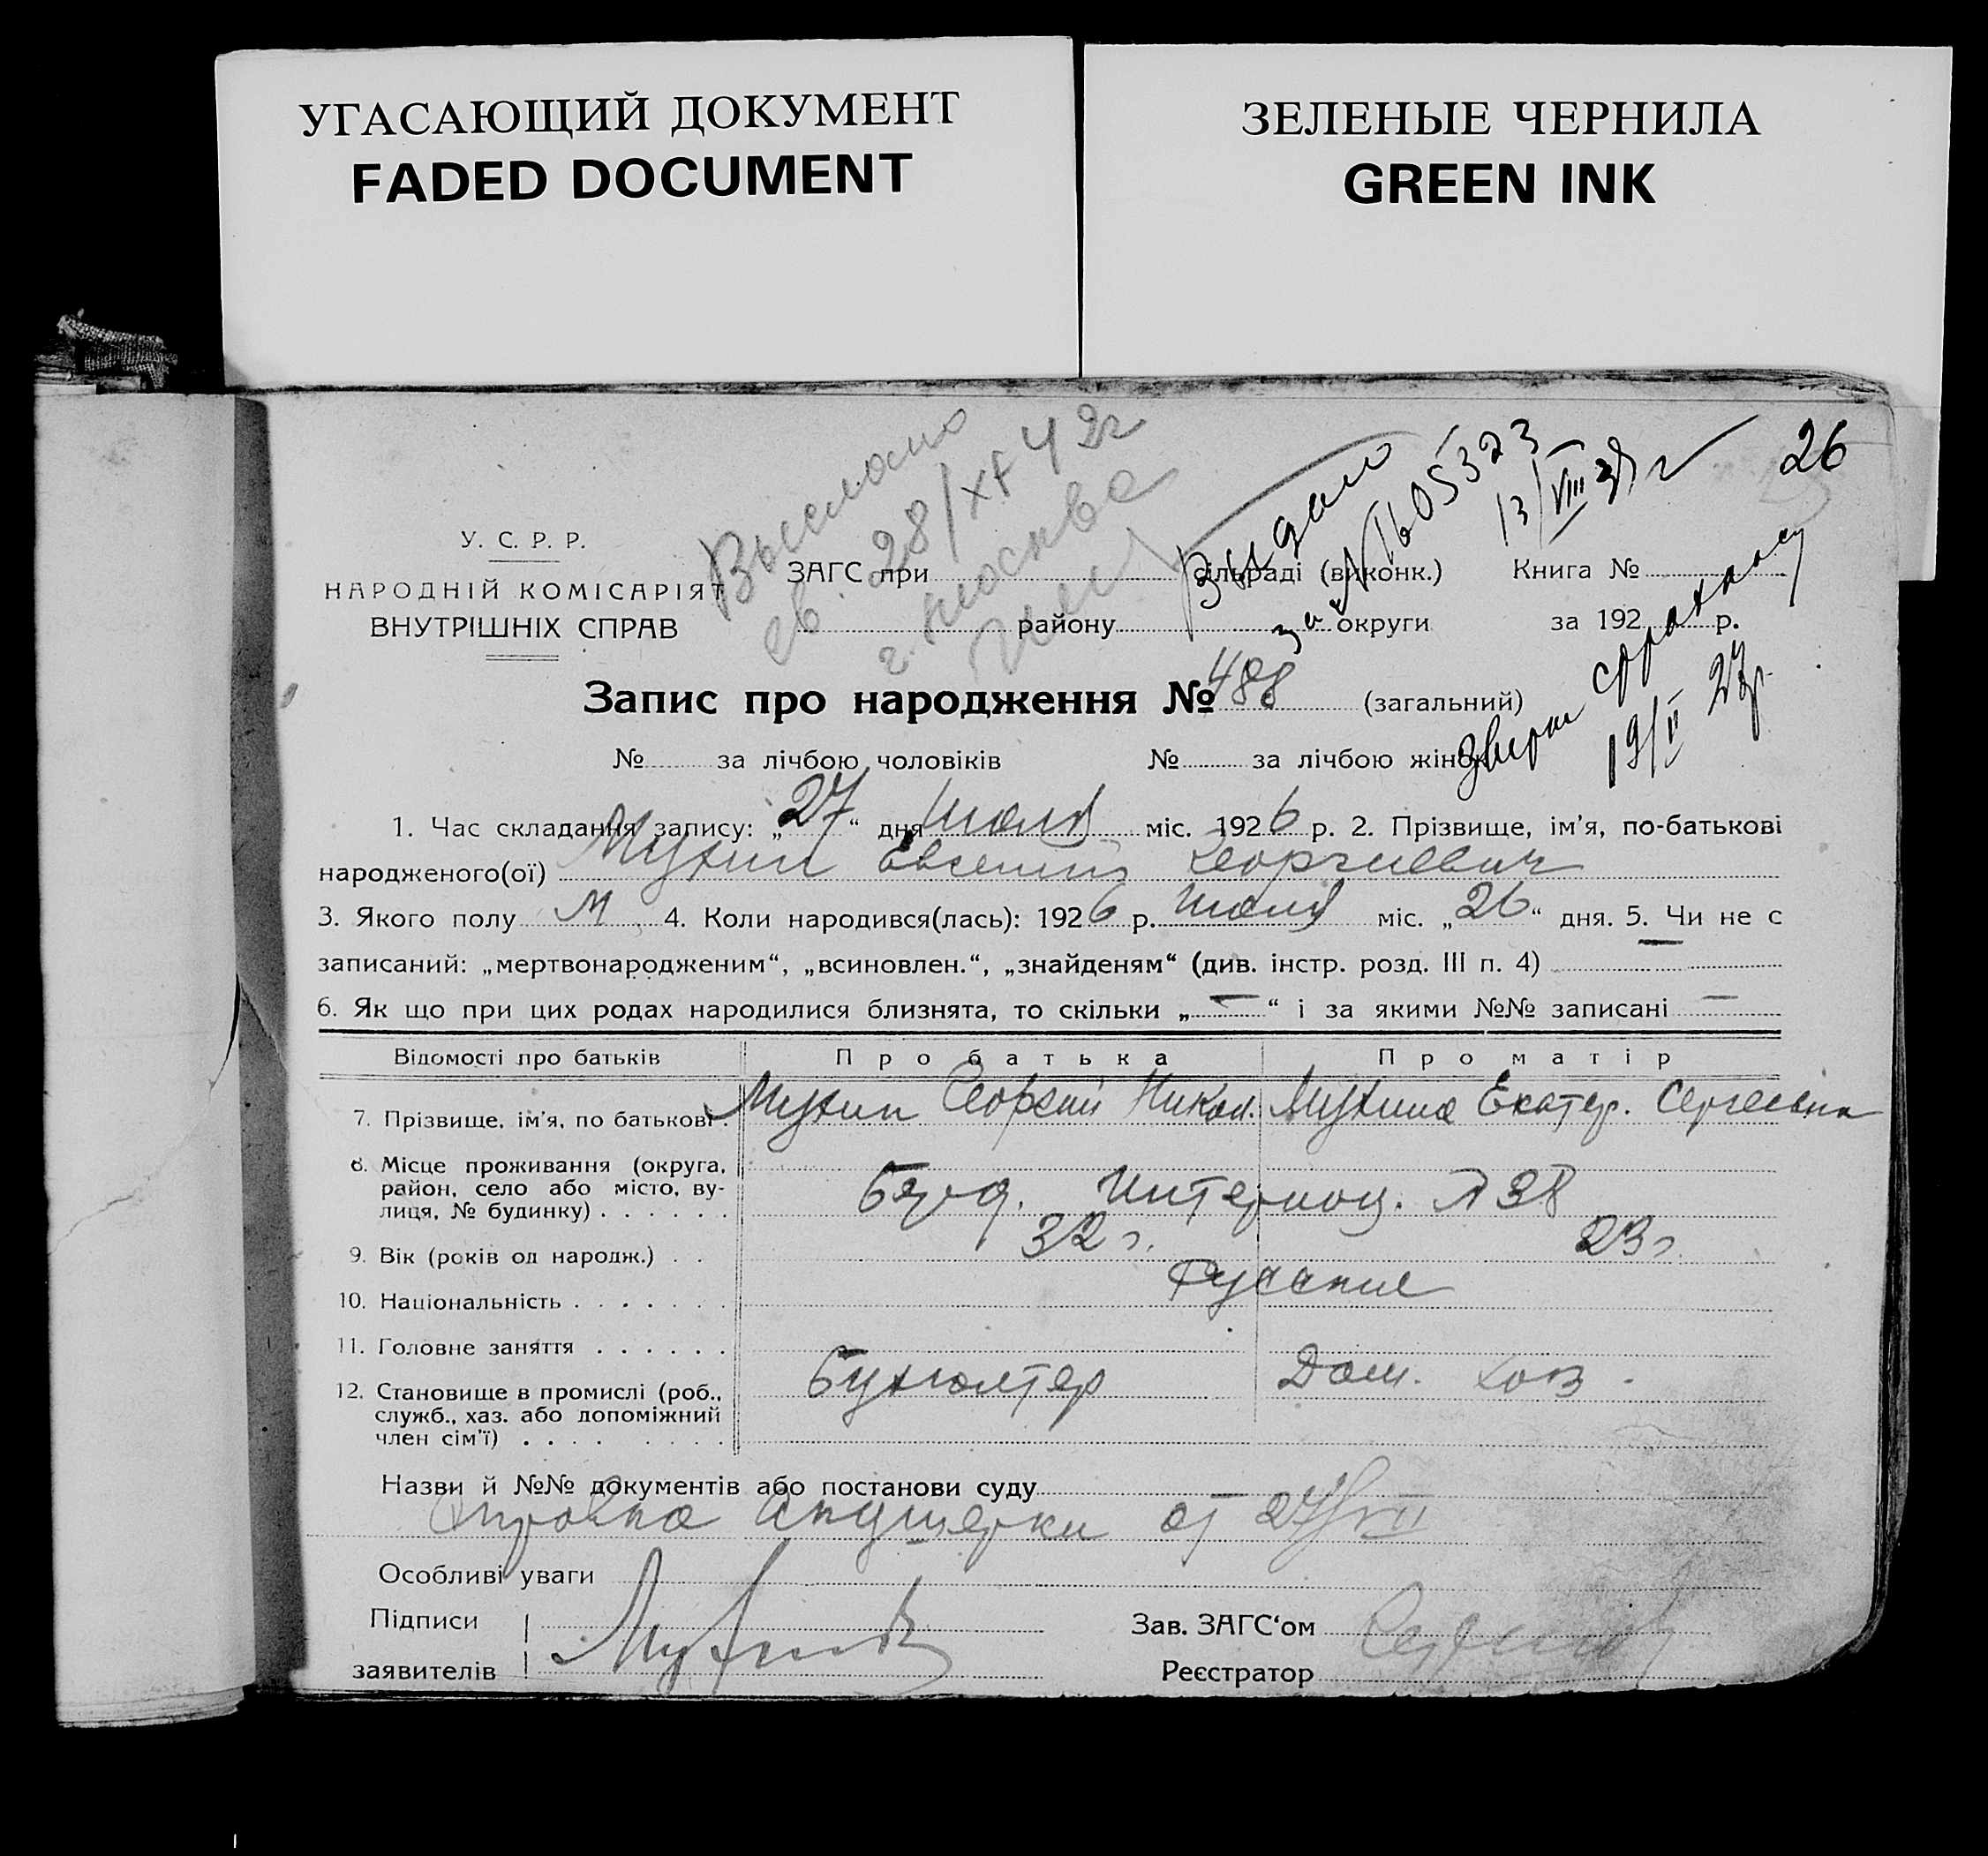 УГАСАЮЩИЙ ДОКУМЕНТ
FADED DOCUMENT
ЗЕЛЕНЫЕ ЧЕРНИЛА
GREEN INK
26
Выслано
св. 28/XI 42г
г. Москва
Выдано
за № 1605323
13/VIII
19/II 27р.
У. С. Р. Р.
НАРОДНІЙ КОМІСАРІЯТ
ВНУТРІШНІХ СПРАВ
ЗАГС при сільраді (виконк.) Книга №
району округи за 192 р.
Запис про народження № 488 (загальний)
№ за лічбою чоловіків № за лічбою жінок
1. Час складання запису: „27“ дня Июля міс. 1926 р. 2. Прізвище, ім'я, по-батькові
народженого(ої) Мухин Евгений Георгиевич
3. Якого полу М 4. Коли народився(лась): 1926 р. Июля міс. „26“ дня. 5. Чи не є
записаний: „мертвонародженим“, „всиновлен.“, „знайденям“ (див. інстр. розд. III п. 4) —
6. Як що при цих родах народилися близнята, то скільки „—“ і за якими №№ записані —
Відомості про батьків Про батька Про матір
7. Прізвище, ім'я, по батькові. Мухин Георгий Никол. Мухина Екатер. Сергеевна
8. Місце проживання (округа,
район, село або місто, ву-
лиця, № будинку) . . . . . . Интернац. № 38
9. Вік (років од народж.) . . 32 г. 23 г.
10. Національність . . . . . . . Русские
11. Головне заняття . . . . . .
12. Становище в промислі (роб.,
служб., хаз. або допоміжний
член сім'ї) . . . . . . . . Бухгалтер Дом. хоз.
Назви й №№ документів або постанови суду
Справка акушерки от 27/VII
Особливі уваги
Підписи
заявителів Мухин
Зав. ЗАГС'ом
Реєстратор